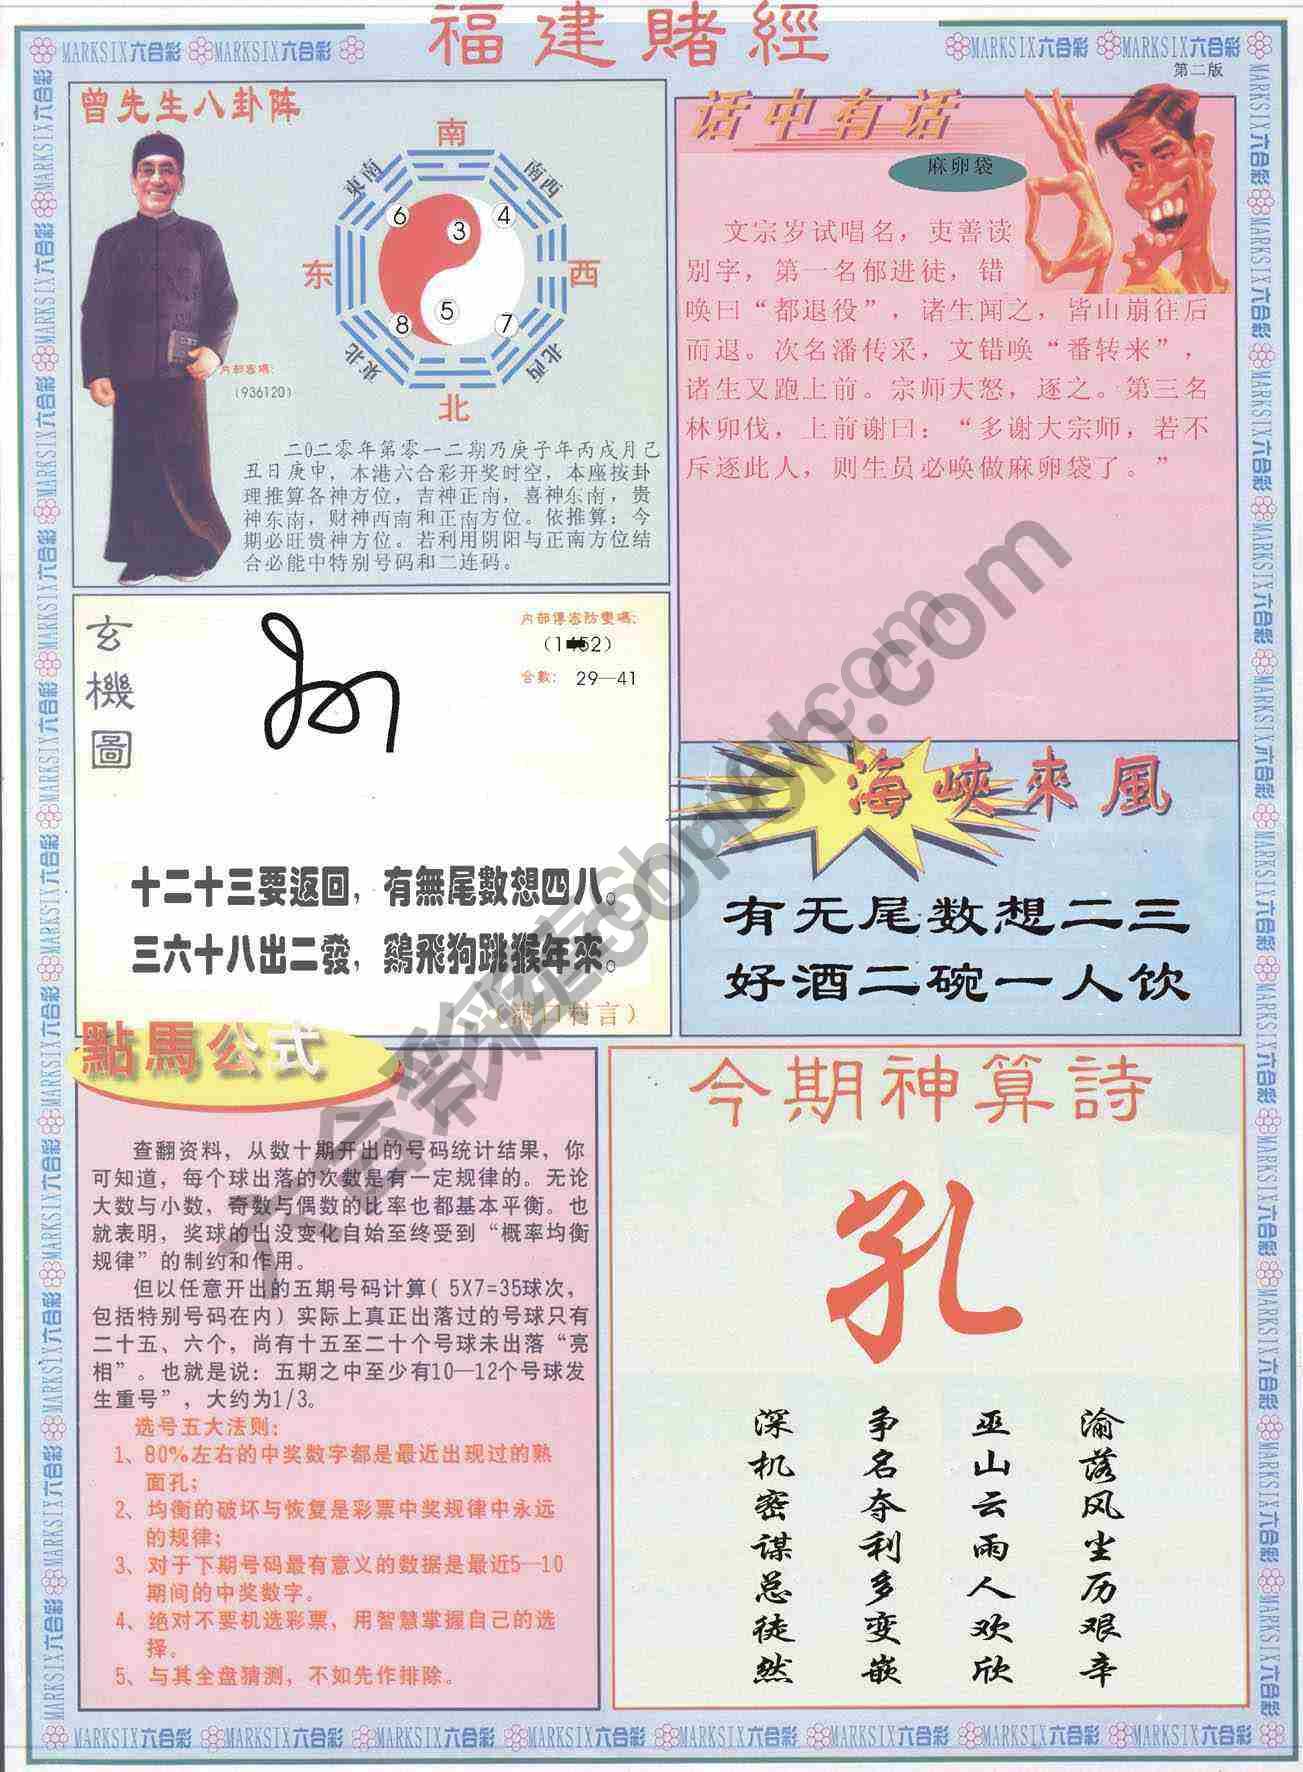 福建賭經
MARKSIX六合彩 MARKSIX六合彩
MARKSIX六合彩 MARKSIX六合彩
第二版
曾先生八卦阵
南
東南
南西
6
3
4
东
西
5
8
7
東北
北西
北
内部密碼:
(936120)
二0二零年第零一二期乃庚子年丙戌月己
丑日庚申，本港六合彩开奖时空，本座按卦
理推算各神方位，吉神正南，喜神东南，贵
神东南，财神西南和正南方位。依推算：今
期必旺贵神方位。若利用阴阳与正南方位结
合必能中特别号码和二连码。
话中有话
麻卵袋
文宗岁试唱名，吏善读
别字，第一名郁进徒，错
唤曰“都退役”，诸生闻之，皆山崩往后
而退。次名潘传采，文错唤“番转来”，
诸生又跑上前。宗师大怒，逐之。第三名
林卯伐，上前谢曰：“多谢大宗师，若不
斥逐此人，则生员必唤做麻卵袋了。”
玄機圖
内部傳密防變碼:
合數: 29—41
十二十三要返回，有無尾數想四八。
三六十八出二發，鷄飛狗跳猴年來。
（满口村言）
海峽來風
有无尾数想二三
好酒二碗一人饮
點馬公式
查翻资料，从数十期开出的号码统计结果，你
可知道，每个球出落的次数是有一定规律的。无论
大数与小数，奇数与偶数的比率也都基本平衡。也
就表明，奖球的出没变化自始至终受到“概率均衡
规律”的制约和作用。
但以任意开出的五期号码计算( 5X7=35球次，
包括特别号码在内）实际上真正出落过的号球只有
二十五、六个，尚有十五至二十个号球未出落“亮
相”。也就是说：五期之中至少有10—12个号球发
生重号”，大约为1/3。
选号五大法则：
1、80%左右的中奖数字都是最近出现过的熟
面孔；
2、均衡的破坏与恢复是彩票中奖规律中永远
的规律；
3、对于下期号码最有意义的数据是最近5—10
期间的中奖数字。
4、绝对不要机选彩票，用智慧掌握自己的选
择。
5、与其全盘猜测，不如先作排除。
今期神算詩
孔
渝落风尘历艰辛
巫山云雨人欢欣
争名夺利多变嵌
深机密谋总徒然
MARKSIX六合彩 MARKSIX六合彩 MARKSIX六合彩 MARKSIX六合彩 MARKSIX六合彩 MARKSIX六合彩 MARKSIX六合彩 MARKSIX六合彩